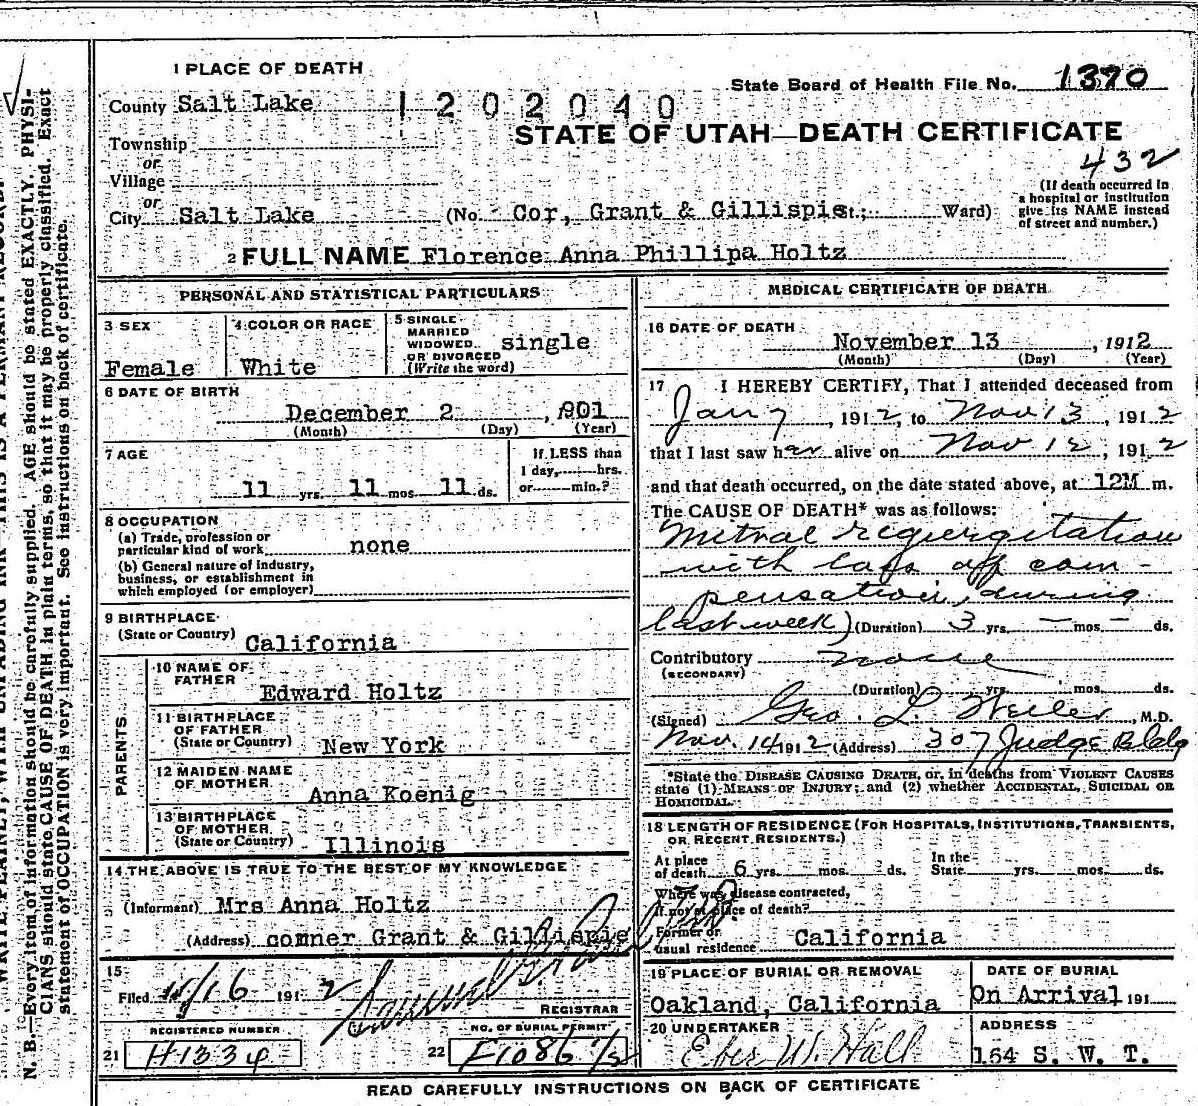 1 PLACE OF DEATH
State Board of Health File No. 1370
County Salt Lake
1202040
STATE OF UTAH—DEATH CERTIFICATE
432
Township
or
Village
or
City Salt Lake (No. Cor, Grant & Gillispie St.; Ward)
(If death occurred in
a hospital or institution
give its NAME instead
of street and number.)
2 FULL NAME Florence Anna Phillipa Holtz
PERSONAL AND STATISTICAL PARTICULARS
3 SEX
Female
4 COLOR OR RACE
White
5 SINGLE
MARRIED
WIDOWED
OR DIVORCED
(Write the word)
single
6 DATE OF BIRTH
December 2, 1901
(Month) (Day) (Year)
7 AGE
11 yrs. 11 mos. 11 ds.
If LESS than
1 day, hrs.
or min.?
8 OCCUPATION
(a) Trade, profession or
particular kind of work none
(b) General nature of industry,
business, or establishment in
which employed (or employer)
9 BIRTHPLACE
(State or Country) California
PARENTS
10 NAME OF
FATHER
Edward Holtz
11 BIRTHPLACE
OF FATHER
(State or Country) New York
12 MAIDEN NAME
OF MOTHER
Anna Koenig
13 BIRTHPLACE
OF MOTHER
(State or Country) Illinois
14 THE ABOVE IS TRUE TO THE BEST OF MY KNOWLEDGE
(Informant) Mrs Anna Holtz
(Address) comner Grant & Gillispie
15
Filed 11/16 1912
REGISTRAR
REGISTERED NUMBER
21 H1334
NO. OF BURIAL PERMIT
22
MEDICAL CERTIFICATE OF DEATH
16 DATE OF DEATH
November 13, 1912
(Month) (Day) (Year)
17 I HEREBY CERTIFY, That I attended deceased from
Jany, 1912, to Nov 13, 1912
that I last saw her alive on Nov 12, 1912
and that death occurred, on the date stated above, at 12M m.
The CAUSE OF DEATH* was as follows:
Mitral regurgitation
with loss of com-
pensation, during
last week) (Duration) 3 yrs. — mos. — ds.
Contributory none
(SECONDARY)
(Duration) yrs. mos. ds.
(Signed) Geo. L. Weiler, M.D.
Nov. 14 1912 (Address) 307 Judge Bldg
*State the DISEASE CAUSING DEATH, or, in deaths from VIOLENT CAUSES
state (1) MEANS OF INJURY; and (2) whether ACCIDENTAL, SUICIDAL OR
HOMICIDAL.
18 LENGTH OF RESIDENCE (FOR HOSPITALS, INSTITUTIONS, TRANSIENTS,
OR RECENT RESIDENTS.)
At place
of death 6 yrs. mos. ds.
In the
State yrs. mos. ds.
Where was disease contracted,
if not at place of death?
Former or
usual residence California
19 PLACE OF BURIAL OR REMOVAL
Oakland, California
DATE OF BURIAL
On Arrival 191
20 UNDERTAKER
Eber W. Hall
ADDRESS
164 S. W. T.
READ CAREFULLY INSTRUCTIONS ON BACK OF CERTIFICATE
N. B.—Every item of information should be carefully supplied. AGE should be stated EXACTLY. PHYSI-
CIANS should state CAUSE OF DEATH in plain terms, so that it may be properly classified. Exact
statement of OCCUPATION is very important. See instructions on back of certificate.